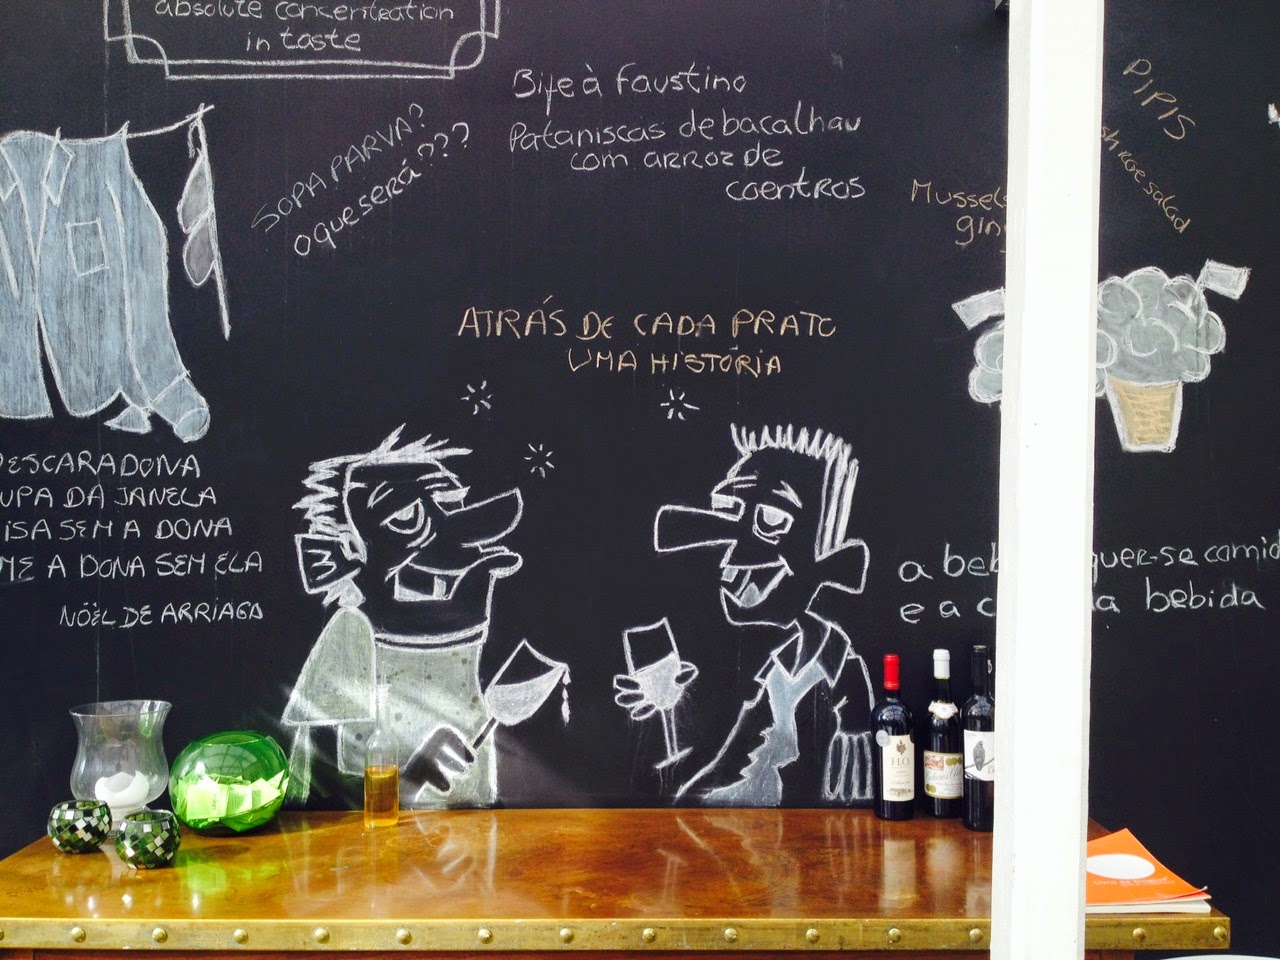 absolute concentration
in taste
Bife à Faustino
Pataniscas de bacalhau
com arroz de
coentros
SOPA PARVA?
O que será???
PIPIS
roe salad
Mussels
ATRÁS DE CADA PRATO
UMA HISTÓRIA
DESCARADONA
UPA DA JANELA
ISA SEM A DONA
ME A DONA SEM ELA
NÖEL DE ARRIAGA
a beb quer-se comid
e a c da bebida